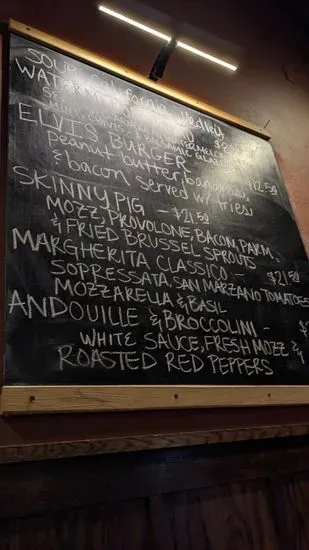 SOUP - California Medley
WATERM
ELVIS BURGER
Peanut butter, bananas, $12.50
& bacon served w/ fries
SKINNY PIG - $21.50
MOZZ, PROVOLONE, BACON, PARM,
& FRIED BRUSSEL SPROUTS
MARGHERITA CLASSICO - $21.50
SOPRESSATA, SAN MARZANO TOMATOES
MOZZARELLA & BASIL
ANDOUILLE & BROCCOLINI - $
WHITE SAUCE, FRESH MOZZ &
ROASTED RED PEPPERS